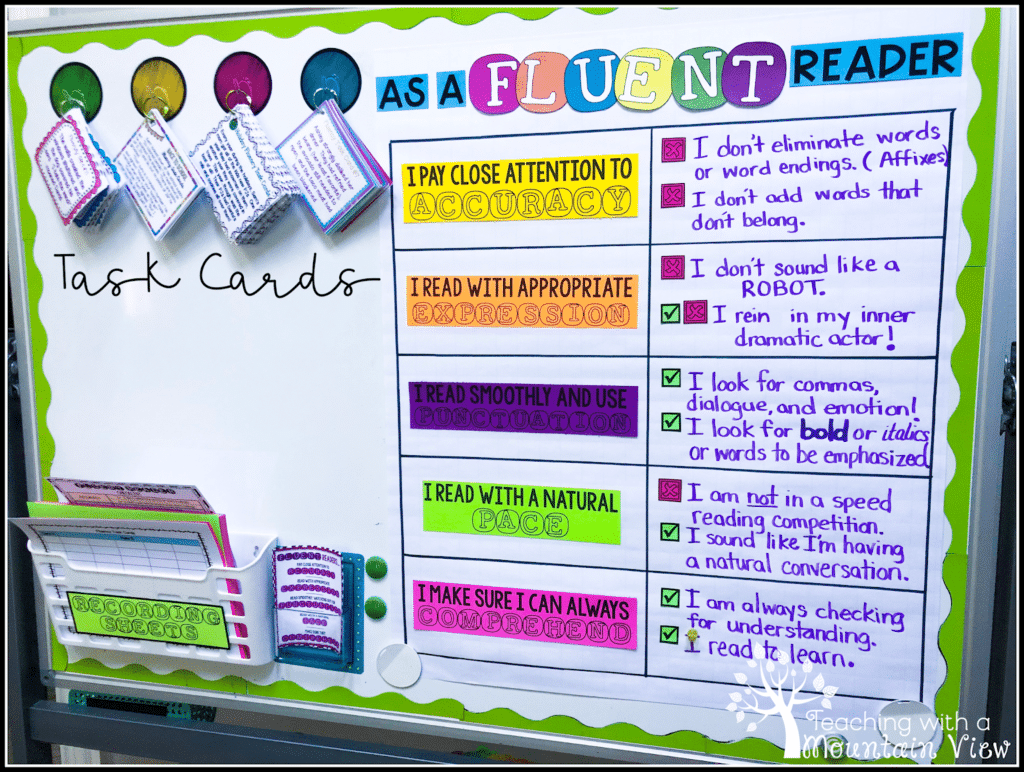 AS A FLUENT READER
Task Cards
I PAY CLOSE ATTENTION TO
ACCURACY
I don't eliminate words
or word endings. (Affixes)
I don't add words that
don't belong.
I READ WITH APPROPRIATE
EXPRESSION
I don't sound like a
ROBOT.
I rein in my inner
dramatic actor!
I READ SMOOTHLY AND USE
PUNCTUATION
I look for commas,
dialogue, and emotion!
I look for bold or italics
or words to be emphasized
I READ WITH A NATURAL
PACE
I am not in a speed
reading competition.
I sound like I'm having
a natural conversation.
I MAKE SURE I CAN ALWAYS
COMPREHEND
I am always checking
for understanding.
I read to learn.
RECORDING
SHEETS
FLUENT READERS
PAY CLOSE ATTENTION TO
ACCURACY
READ WITH APPROPRIATE
EXPRESSION
PUNCTUATION
PACE
COMPREHEND
Teaching with a
Mountain View